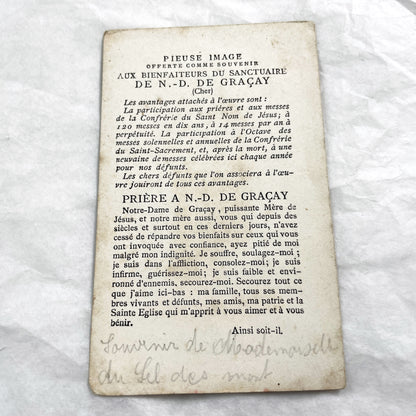 PIEUSE IMAGE
OFFERTE COMME SOUVENIR
AUX BIENFAITEURS DU SANCTUAIRE
DE N.-D. DE GRAÇAY
(Cher)
Les avantages attachés à l'œuvre sont :
La participation aux prières et aux messes
de la Confrérie du Saint Nom de Jésus; à
120 messes en dix ans, à 14 messes par an à
perpétuité. La participation à l'Octave des
messes solennelles et annuelles de la Confrérie
du Saint-Sacrement, et, après la mort, à une
neuvaine de messes célébrées ici chaque année
pour nos défunts.
Les chers défunts que l'on associera à l'œu-
vre jouiront de tous ces avantages.
PRIÈRE A N.-D. DE GRAÇAY
Notre-Dame de Graçay, puissante Mère de
Jésus, et notre mère aussi, vous qui depuis des
siècles et surtout en ces derniers jours, n'avez
cessé de répandre vos bienfaits sur ceux qui vous
ont invoquée avec confiance, ayez pitié de moi
malgré mon indignité. Je souffre, soulagez-moi;
je suis dans l'affliction, consolez-moi; je suis
infirme, guérissez-moi; je suis faible et environ-
né d'ennemis, secourez-moi. Secourez tout ce
que j'aime ici-bas : ma famille, tous ses mem-
bres vivants et défunts, mes amis, ma patrie et la
Sainte Eglise qui m'apprit à vous aimer et à vous
bénir.
Ainsi soit-il.
Souvenir de Mademoiselle
du